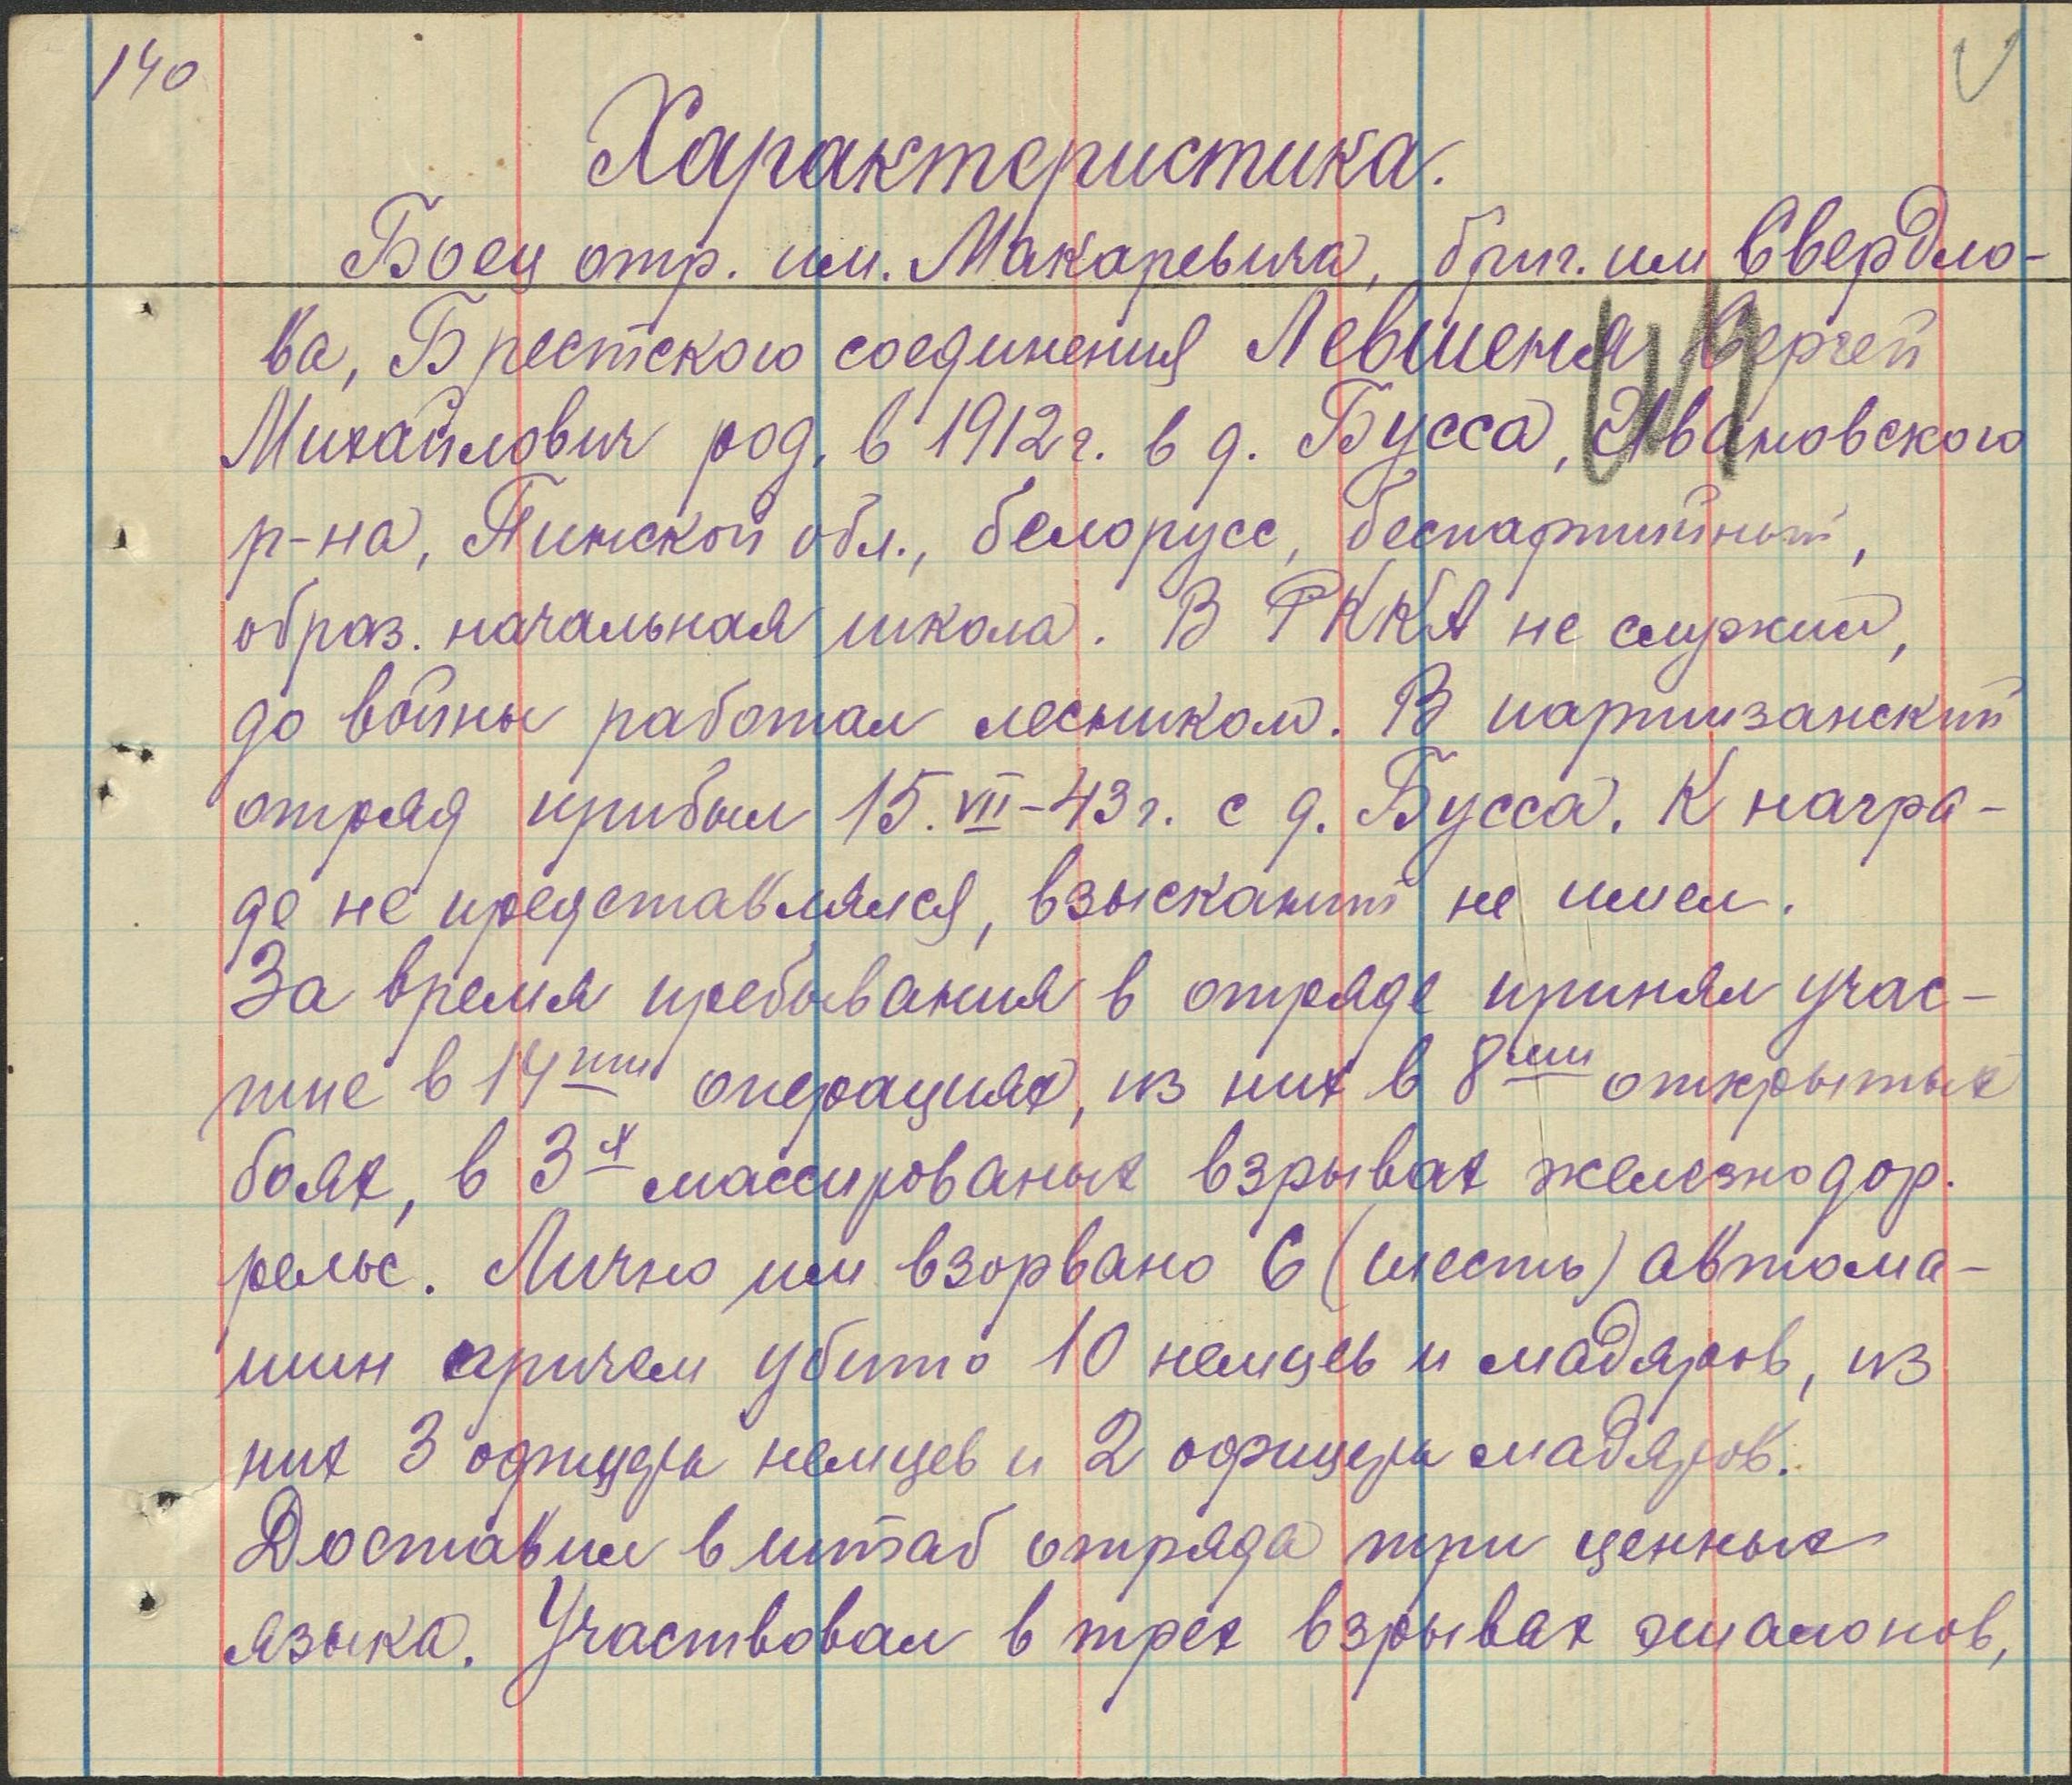 140
Характеристика.
Боец отр. им. Макаревича, бриг. им Свердло-
ва, Брестского соединения Левшеня Сергей
Михайлович род. в 1912 г. в д. Бусса, Ивановского
р-на, Пинской обл., белорусс, беспартийный,
образ. начальная школа. В РККА не служил,
до войны работал лесником. В партизанский
отряд прибыл 15.VII-43 г. с д. Бусса. К награ-
де не представлялся, взысканий не имел.
За время пребывания в отряде принял учас-
тие в 14ти операциях, из них в 8ми открытых
боях, в 3х массированых взрывах железнодор.
рельс. Лично им взорвано 6 (шесть) автома-
шин причем убито 10 немцев и мадяров, из
них 3 офицера немцев и 2 офицера мадяров.
Доставил в штаб отряда три ценных
языка. Участвовал в трех взрывах эшалонов,